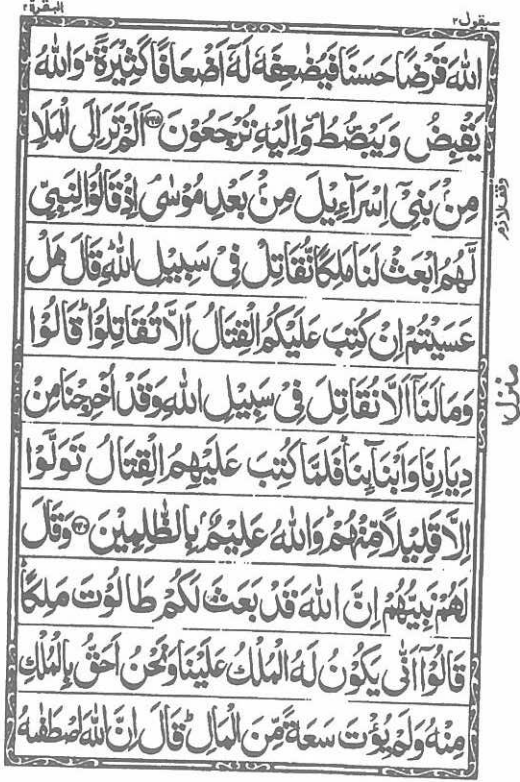 سیقول ۲
البقرة ۲
اللّٰهَ قَرْضًا حَسَنًا فَيُضٰعِفَهٗ لَهٗۤ اَضْعَافًا كَثِيْرَةً ؕ وَاللّٰهُ
يَقْبِضُ وَيَبْصُۜطُ وَاِلَيْهِ تُرْجَعُوْنَ ۝۲۴۵ اَلَمْ تَرَ اِلَى الْمَلَاِ
مِنْۢ بَنِيْۤ اِسْرَآءِيْلَ مِنْۢ بَعْدِ مُوْسٰى ۘ اِذْ قَالُوْا لِنَبِيٍّ
لَّهُمُ ابْعَثْ لَنَا مَلِكًا نُّقَاتِلْ فِيْ سَبِيْلِ اللّٰهِ ؕ قَالَ هَلْ
عَسَيْتُمْ اِنْ كُتِبَ عَلَيْكُمُ الْقِتَالُ اَلَّا تُقَاتِلُوْا ؕ قَالُوْا
وَمَا لَنَاۤ اَلَّا نُقَاتِلَ فِيْ سَبِيْلِ اللّٰهِ وَقَدْ اُخْرِجْنَا مِنْ
دِيَارِنَا وَاَبْنَآئِنَا ؕ فَلَمَّا كُتِبَ عَلَيْهِمُ الْقِتَالُ تَوَلَّوْا
اِلَّا قَلِيْلًا مِّنْهُمْ ؕ وَاللّٰهُ عَلِيْمٌۢ بِالظّٰلِمِيْنَ ۝۲۴۶ وَقَالَ
لَهُمْ نَبِيُّهُمْ اِنَّ اللّٰهَ قَدْ بَعَثَ لَكُمْ طَالُوْتَ مَلِكًا ؕ
قَالُوْۤا اَنّٰى يَكُوْنُ لَهُ الْمُلْكُ عَلَيْنَا وَنَحْنُ اَحَقُّ بِالْمُلْكِ
مِنْهُ وَلَمْ يُؤْتَ سَعَةً مِّنَ الْمَالِ ؕ قَالَ اِنَّ اللّٰهَ اصْطَفٰىهُ
وقف لازم
منزل ۱